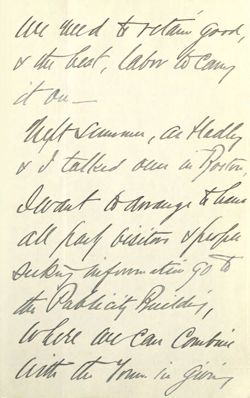 we need to retain good,
& the best, labor to carry
it on —
Next summer, as Hadley
& I talked over in Boston,
I want to arrange to have
all park visitors & people
seeking information go to
the Publicity Building,
where we can combine
with the Town in giving